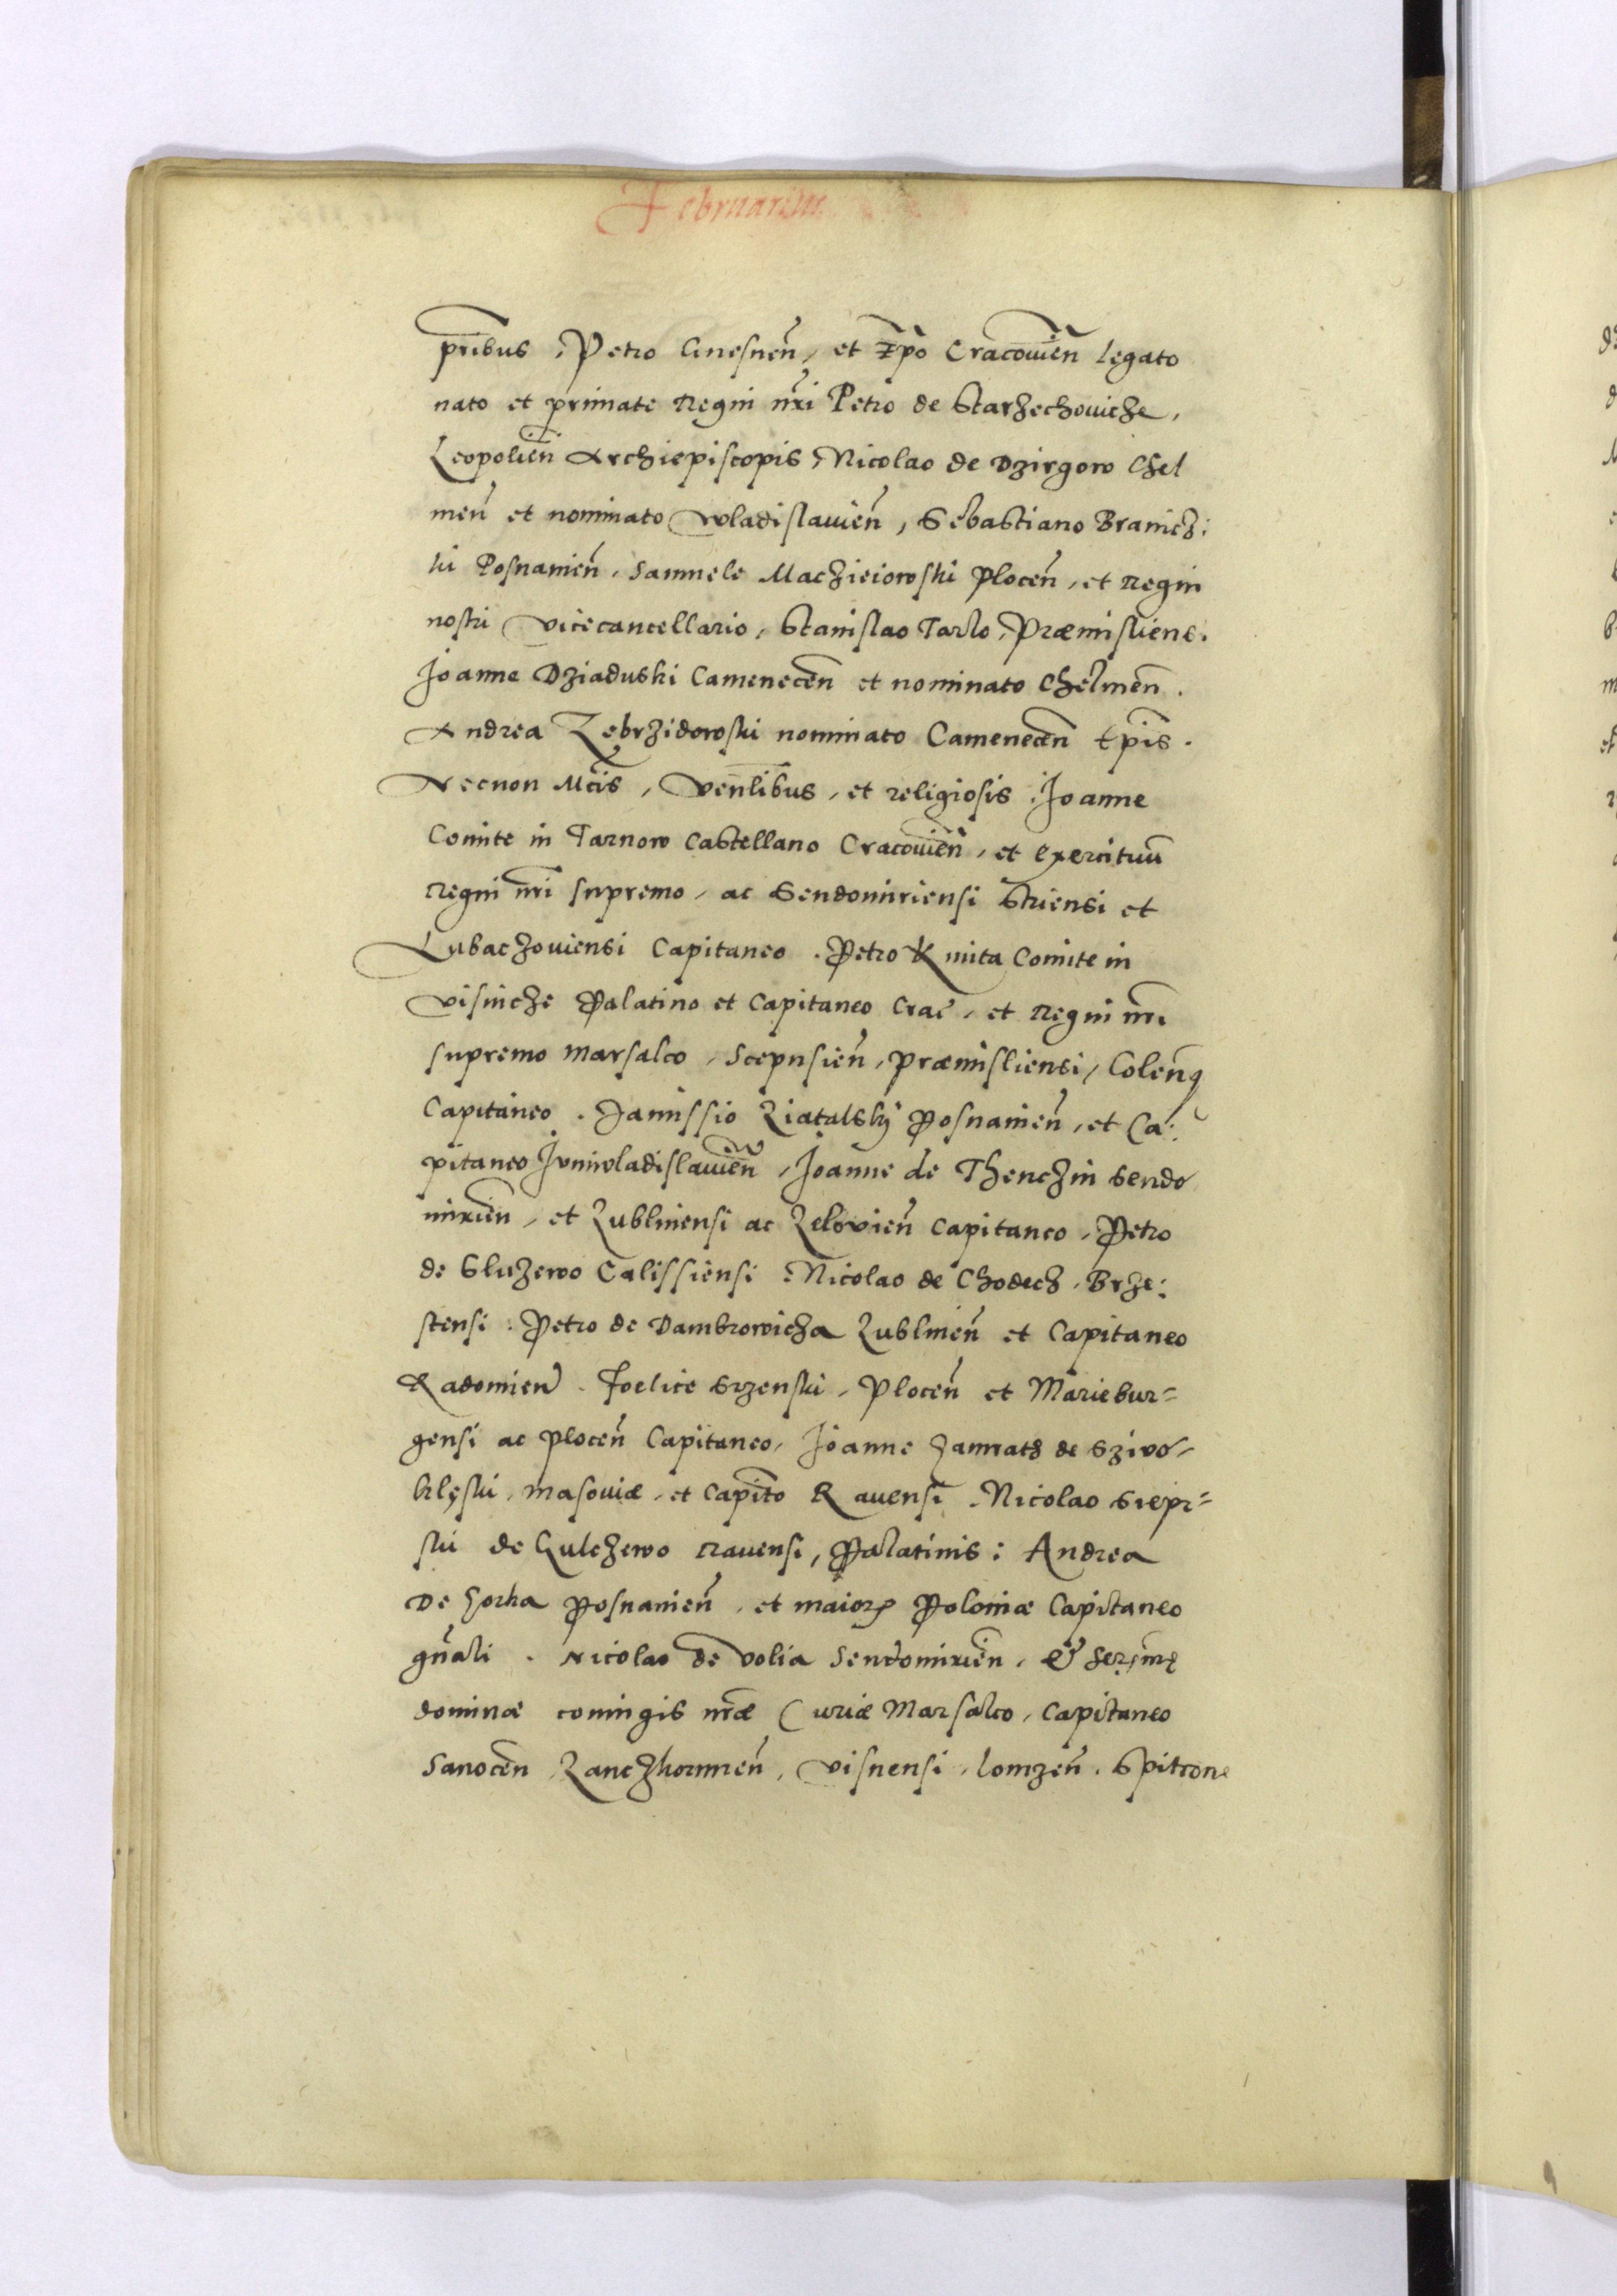 Februarius
pribus, Petro Gnesnen, et Epo Cracovien legato
nato et primate Regni nri Petro de Starzechoviche,
Leopolien Archiepiscopis, Nicolao de Dzirgow Chel
men et nominato Wladislavien, Sebastiano Branicz:
ki Posnanien, Samuele Maczieiowski Plocen, et Regni
nostri Vicecancellario, Stanislao Tarlo, Præmisliens.
Joanne Dziaduski Camenecen et nominato Chelmen.
Andrea Zebrzidowski nominato Camenecen Epis.
Necnon Mcis, Venlibus, et religiosis, Joanne
Comite in Tarnow Castellano Cracovien, et exercituu
Regni nri supremo, ac Sendomiriensi Striensi et
Lubaczoviensi Capitaneo. Petro Kmita Comite in
Visnicze Palatino et Capitaneo Crac, et Regni nri
supremo Marsalco, Scepusien, Præmisliensi, Colenq
Capitaneo. Janussio Latalskj Posnanien, et Ca:
pitaneo Juniwladislavien, Joanne de Thenczin Sendo
mirien, et Lubliniensi ac Zelovien Capitaneo, Petro
de Sluzewo Calissiensi, Nicolao de Chodecz, Brze:
stensi. Petro de Dambrowicza Lublinen et Capitaneo
Radomien. Foelice Srzenski, Plocen et Mariebur=
gensi ac Plocen Capitaneo, Joanne
Masoviæ, et Capito Ravensi. Nicolao Siepr=
ski de Gulczewo Ravensi, Palatinis: Andrea
De Gorka Posnanien, et maioris Poloniæ Capitaneo
gnali. Nicolao de Volia Sendomirien, & Sermę
dominæ coniugis nræ Curiæ Marsalco, Capitaneo
Sanocen, Lanczkorunen, Visnensi, Lomzen. Spitcone